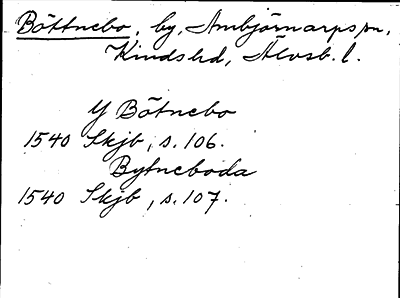 Böttnebo, by, Ambjörnarps sn,
Kinds hd, Älvsb. l.
Y Bötnebo
1540 Skjb, s. 106.
Bytneboda
1540 Skjb, s. 107.